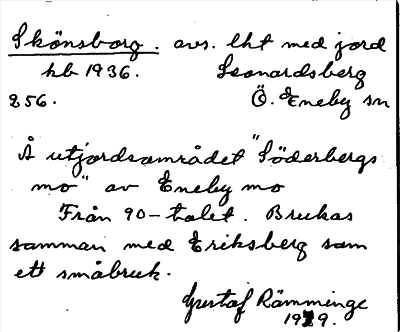 Skönsborg. avs. lht med jord
hb 1936. Leonardsberg
256. Ö. Eneby sn
Å utjordsområdet "Söderbergs
mo" av Eneby mo
Från 90-talet. Brukas
samman med Eriksberg som
ett småbruk.
Gustaf Rämminge
1929.